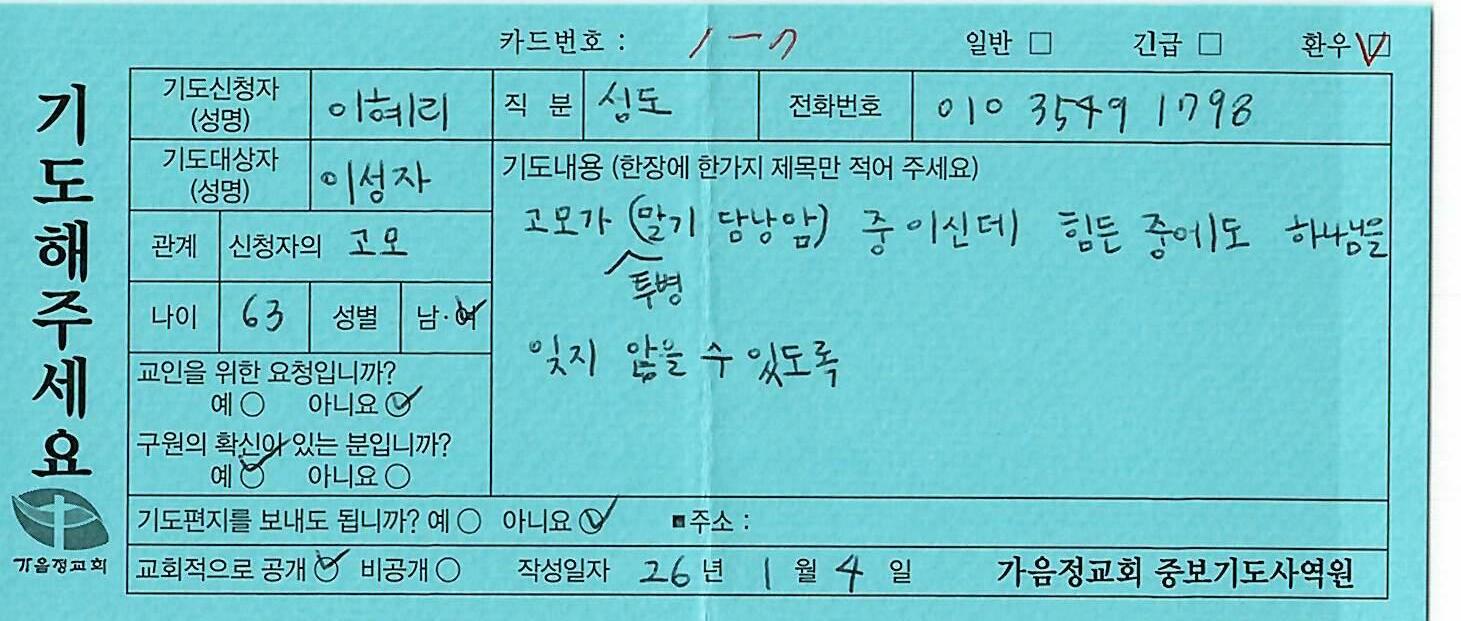 카드번호 : 1-7 일반 □ 긴급 □ 환우 ☑
기도해주세요
기도신청자 (성명) 이혜리 직 분 성도 전화번호 010 3549 1798
기도대상자 (성명) 이성자
관계 신청자의 고모
나이 63 성별 남·여
교인을 위한 요청입니까?
예 ○ 아니요 ☑
구원의 확신이 있는 분입니까?
예 ☑ 아니요 ○
기도내용 (한장에 한가지 제목만 적어 주세요)
고모가 (말기 담낭암) 중이신데 힘든 중에도 하나님을
투병
잊지 않을 수 있도록
기도편지를 보내도 됩니까? 예 ○ 아니요 ☑ ■주소 :
교회적으로 공개 ☑ 비공개 ○ 작성일자 26년 1월 4일 가음정교회 중보기도사역원
가음정교회